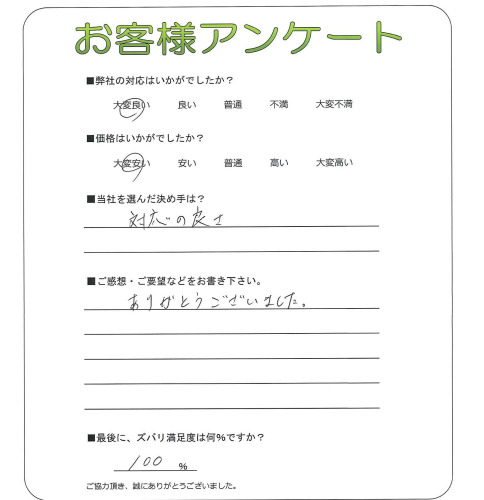 お客様アンケート
■弊社の対応はいかがでしたか？
大変良い 良い 普通 不満 大変不満
■価格はいかがでしたか？
大変安い 安い 普通 高い 大変高い
■当社を選んだ決め手は？
対応の良さ
■ご感想・ご要望などをお書き下さい。
ありがとうございました。
■最後に、ズバリ満足度は何%ですか？
100 %
ご協力頂き、誠にありがとうございました。